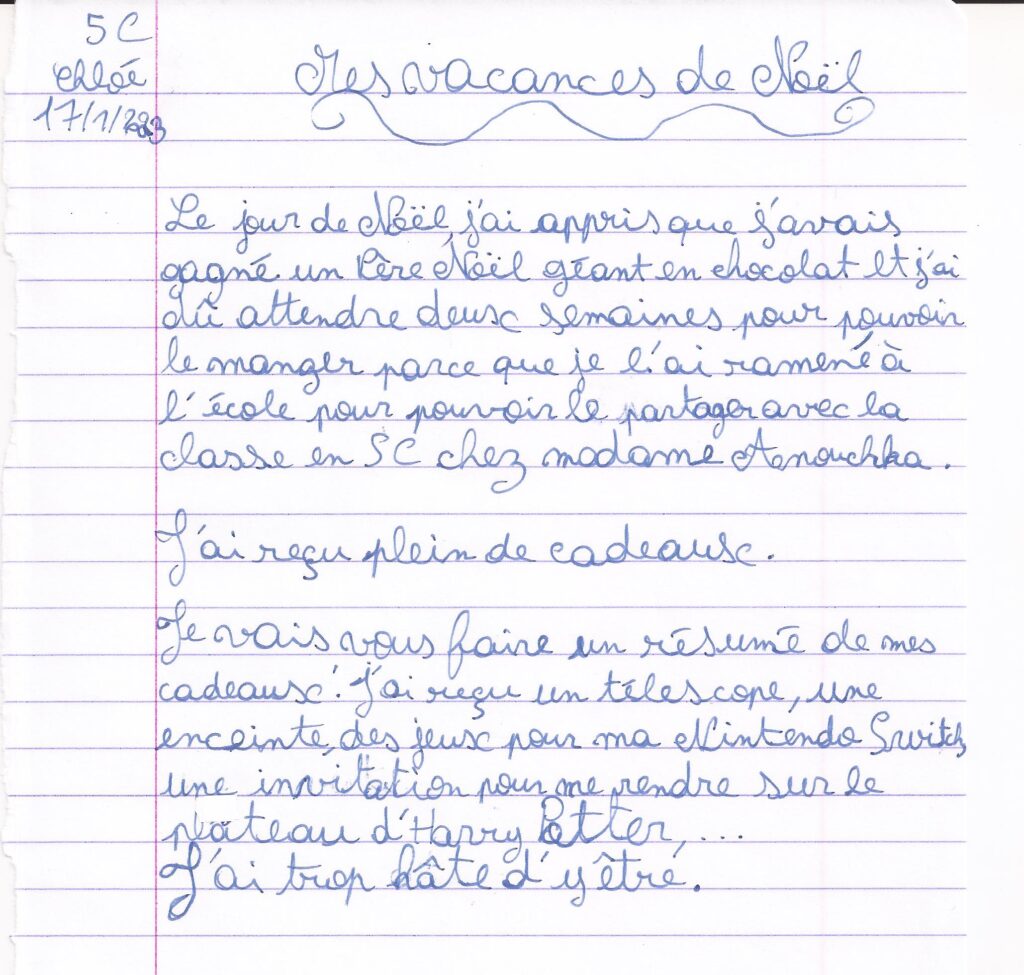 5C
Chloé
17/1/2023
Mes vacances de Noël
Le jour de Noël, j'ai appris que j'avais
gagné un Père Noël géant en chocolat et j'ai
dû attendre deux semaines pour pouvoir
le manger parce que je l'ai ramené à
l'école pour pouvoir le partager avec la
classe en 5C chez madame Anouchka.
J'ai reçu plein de cadeaux.
Je vais vous faire un résumé de mes
cadeaux : J'ai reçu un télescope, une
enceinte, des jeux pour ma Nintendo Switch,
une invitation pour me rendre sur le
plateau d'Harry Potter, ...
J'ai trop hâte d'y être.